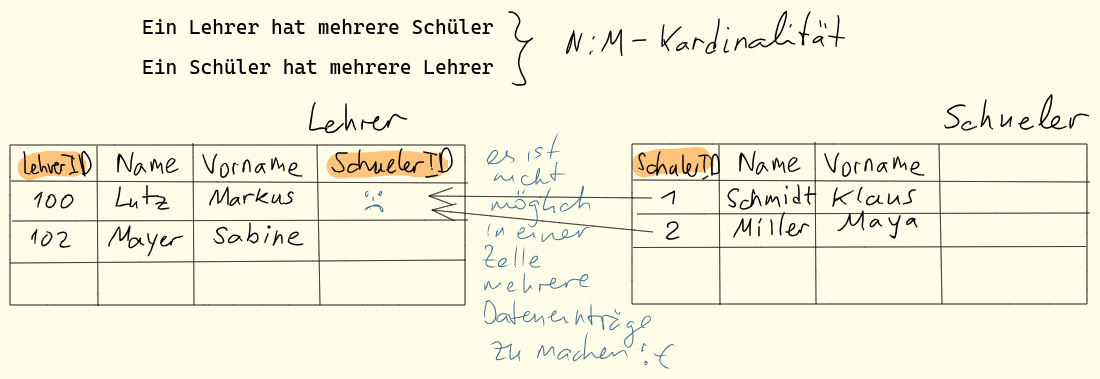 Ein Lehrer hat mehrere Schüler
Ein Schüler hat mehrere Lehrer
N:M-Kardinalität
Lehrer
LehrerID Name Vorname SchuelerID
100 Lutz Markus :(
102 Mayer Sabine
es ist
nicht
möglich
in einer
Zelle
mehrere
Dateneinträge
zu machen :(
Schueler
SchülerID Name Vorname
1 Schmidt Klaus
2 Miller Maya